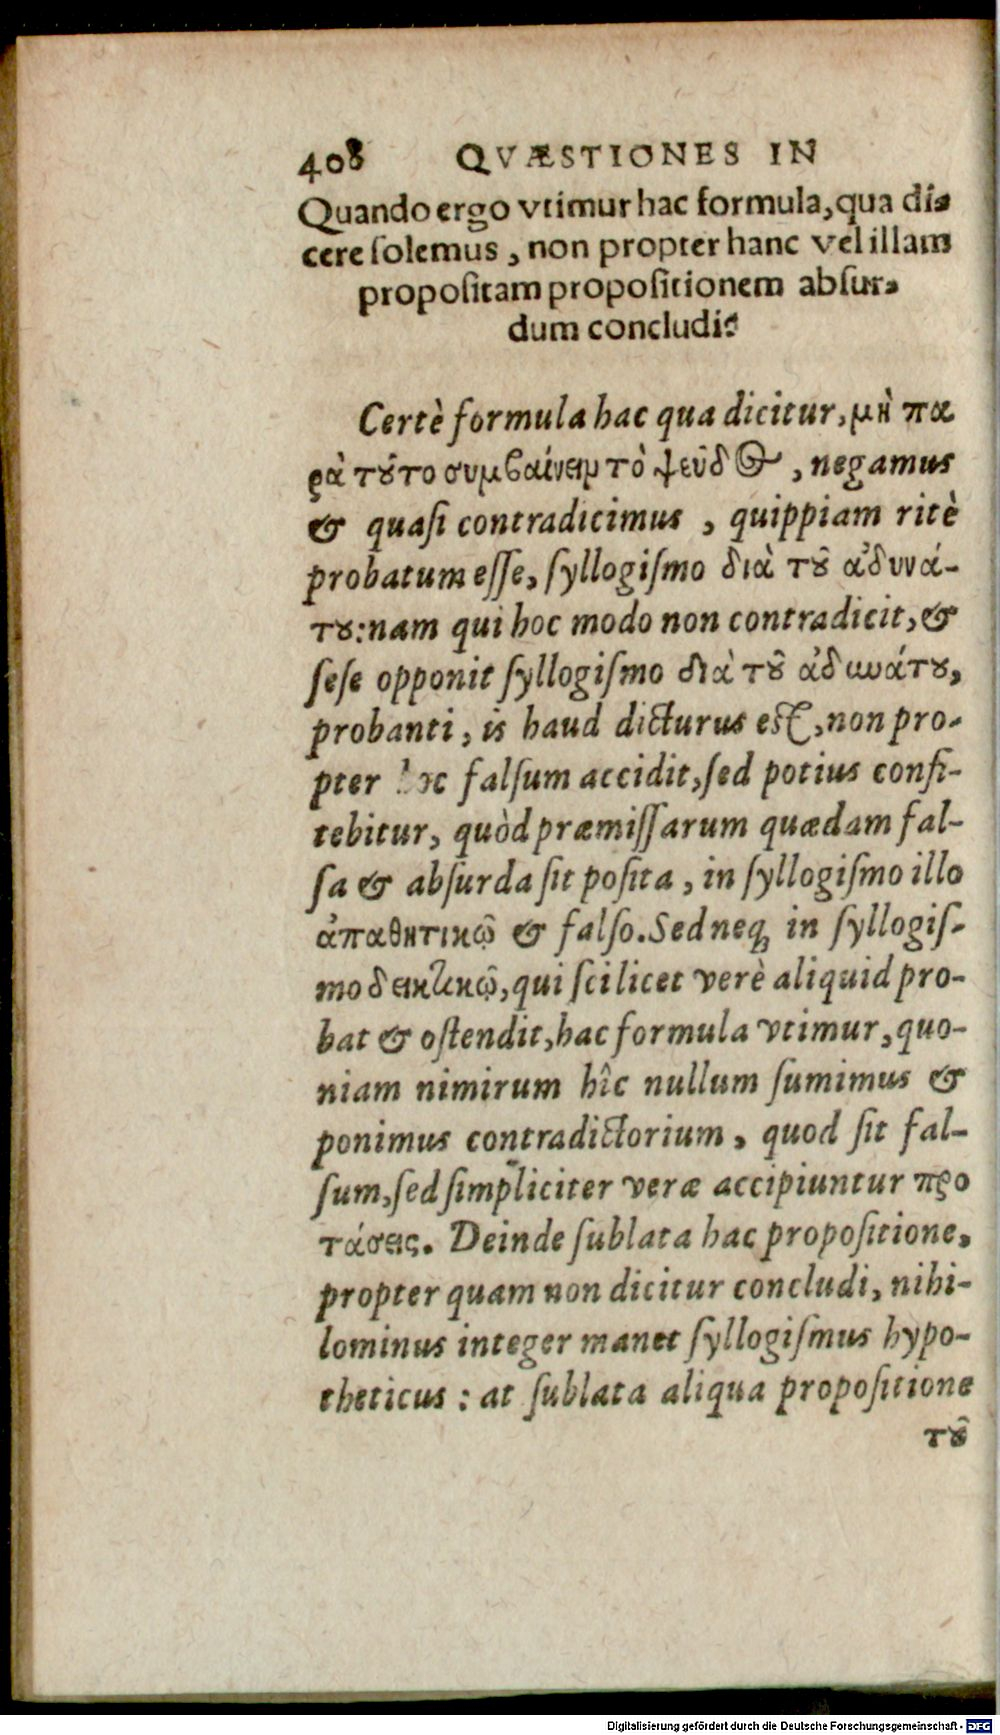 408 QVÆSTIONES IN
Quando ergo vtimur hac formula, qua di⸗
cere ſolemus, non propter hanc vel illam
propoſitam propoſitionem abſur⸗
dum concludi?
Certè formula hac qua dicitur, μὴ πα
ρὰ τȣ̃το συμβαίνειν τὸ ψεῦδος, negamus
& quaſi contradicimus, quippiam ritè
probatum eſſe, ſyllogiſmo διὰ τȣ̃ ἀδυνά-
τȣ: nam qui hoc modo non contradicit, &
ſeſe opponit ſyllogiſmo διὰ τȣ̃ ἀδυνάτȣ,
probanti, is haud dicturus eſt, non pro-
pter hoc falſum accidit, ſed potius confi-
tebitur, quòd præmiſſarum quædam fal-
ſa & abſurda ſit poſita, in ſyllogiſmo illo
ἀπαθητικῷ & falſo. Sed neq; in ſyllogiſ-
mo δεικτικῷ, qui ſcilicet verè aliquid pro-
bat & oſtendit, hac formula vtimur, quo-
niam nimirum hîc nullum ſumimus &
ponimus contradictorium, quod ſit fal-
ſum, ſed ſimpliciter veræ accipiuntur προ
τάσεις. Deinde ſublata hac propoſitione,
propter quam non dicitur concludi, nihi-
lominus integer manet ſyllogiſmus hypo-
theticus: at ſublata aliqua propoſitione
τȣ̃
Digitalisierung gefördert durch die Deutsche Forschungsgemeinschaft - DFG